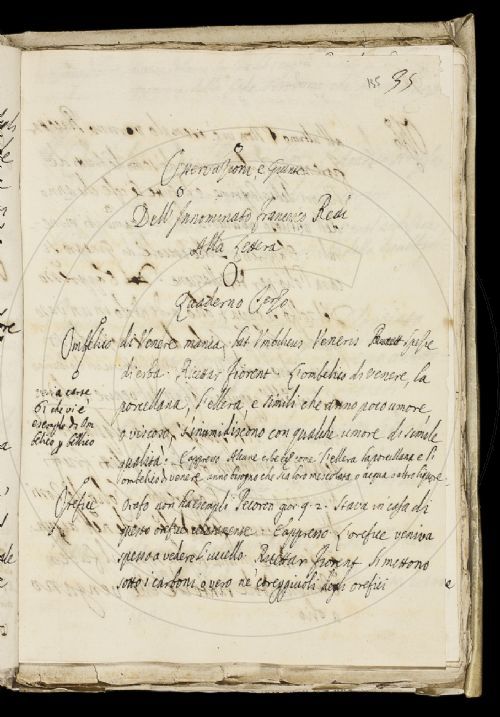 185 35
Osservazioni, e Giunte
Dell'Innominato Francesco Redi
Alla Lettera
O
Quaderno Terzo
Ombelico di Venere manca. Lat Umbilicus Veneris spezie
d'erba. Ricettar fiorent. L'ombelico di venere, la
porcellana, l'ellera, e simili che anno poco umore
o viscoso, s'inumidiscono con qualche umore di simile
qualità. E appresso Alcune erbe come l'ellera la porcellana e l'
ombelico di venere anno bisogno che sia loro mescolata o acqua o altro liquore.
vedi a carte
61 che vi è
esempio di Om
belico e Bellico
Orefice Orafo non ha esempli Pecoron gior 9. 2. Stava in casa di
questo orefice E appresso L'orefice veniva
spesso a vedere l'uccello. Ricettar fiorent Si mettono
sotto i carboni o vero ne coreggiuoli degli orefici